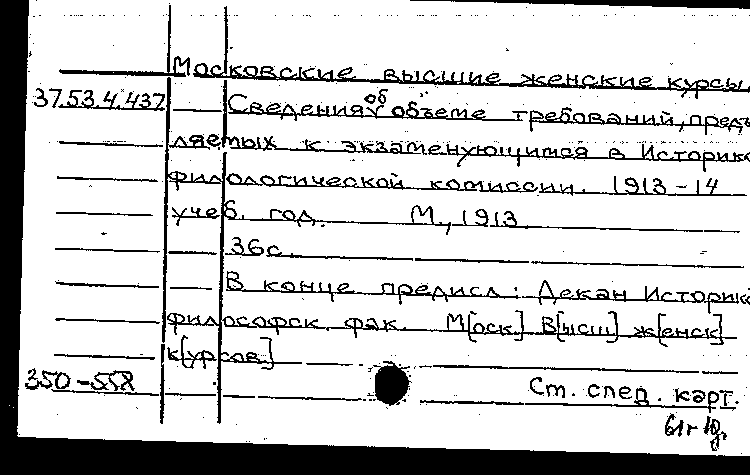 Московские высшие женские курсы.
37.53.4.437 Сведения об объеме требований, предъ
ляемых к экзаменующимся в Историко
филологической комиссии. 1913-14
учеб. год. М., 1913.
36с.
В конце предисл: Декан Историко
философск. фак. М[оск.] В[ысш] ж[енск]
к[урсов.]
350-558
Ст. спец. карт.